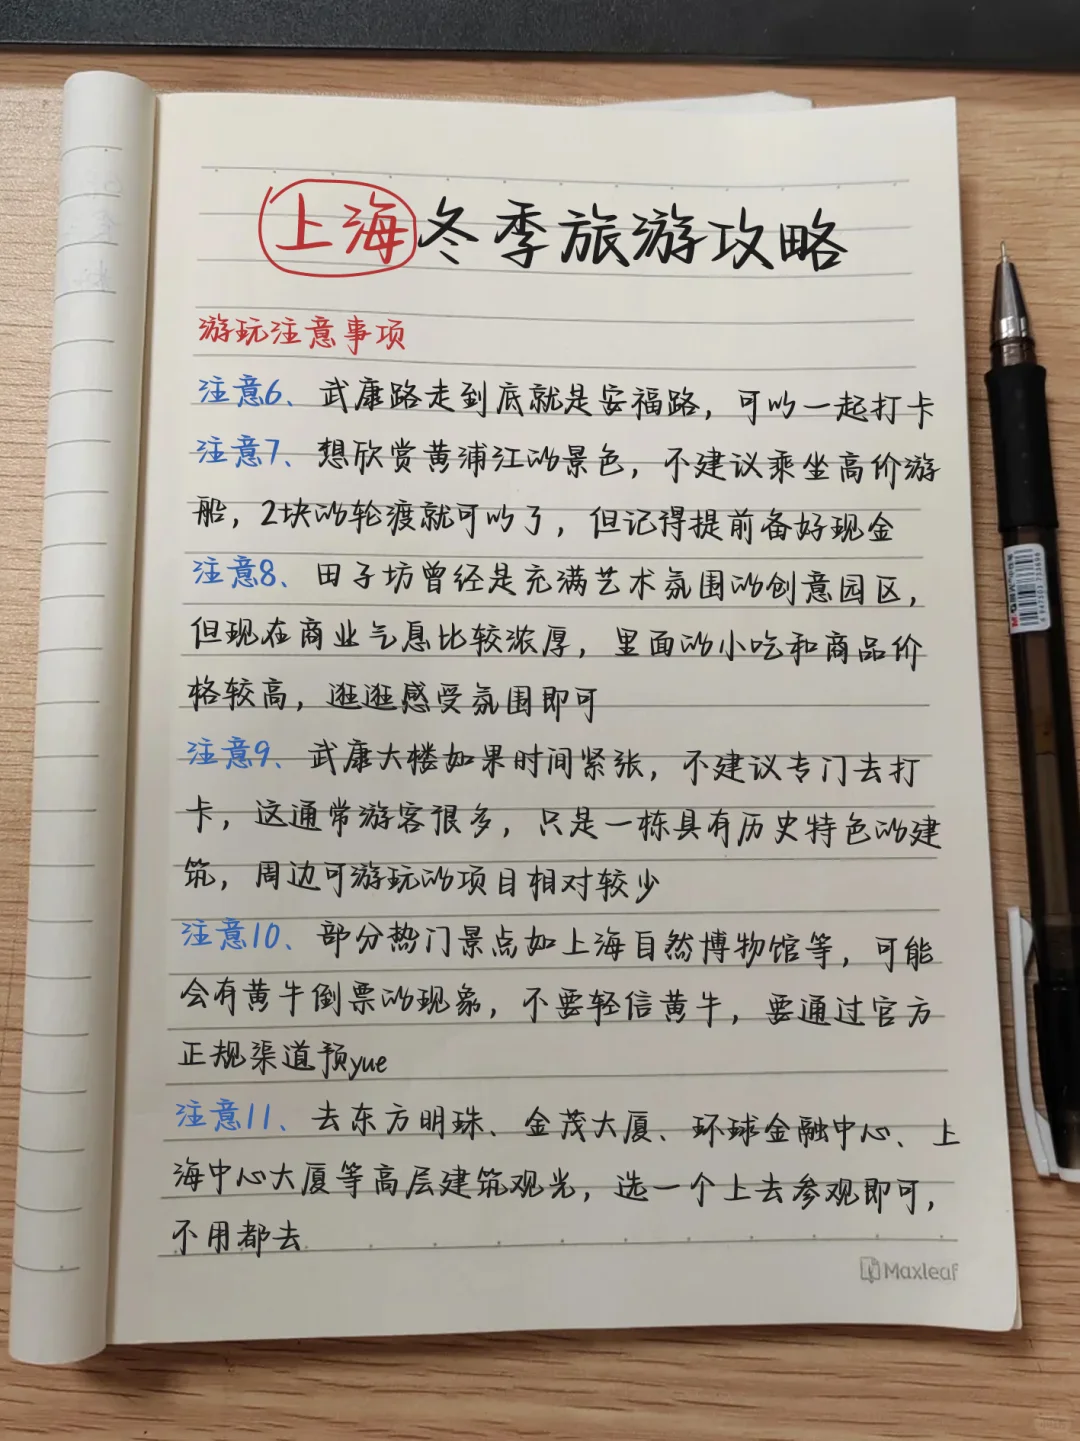 上海冬季旅游攻略
游玩注意事项
注意6、武康路走到底就是安福路，可以一起打卡
注意7、想欣赏黄浦江的景色，不建议乘坐高价游
船，2块的轮渡就可以了，但记得提前备好现金
注意8、田子坊曾经是充满艺术氛围的创意园区，
但现在商业气息比较浓厚，里面的小吃和商品价
格较高，逛逛感受氛围即可
注意9、武康大楼如果时间紧张，不建议专门去打
卡，这通常游客很多，只是一栋具有历史特色的建
筑，周边可游玩的项目相对较少
注意10、部分热门景点如上海自然博物馆等，可能
会有黄牛倒票的现象，不要轻信黄牛，要通过官方
正规渠道预yue
注意11、去东方明珠、金茂大厦、环球金融中心、上
海中心大厦等高层建筑观光，选一个上去参观即可，
不用都去
Maxleaf